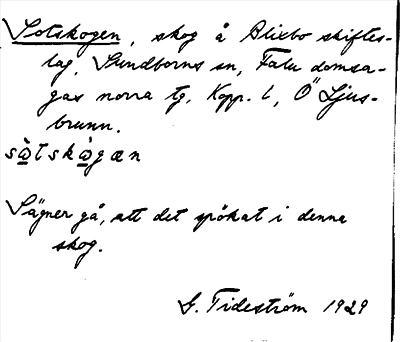 Sotskogen, skog å Blixbo skiftes-
lag, Sundborns sn, Falu domsa-
gas norra tg, Kopp. l, Ö Ljus-
brunn.
sɷ̀tskɷ̀gæn
Sägner gå, att det spökat i denna
skog.
G. Tideström 1929